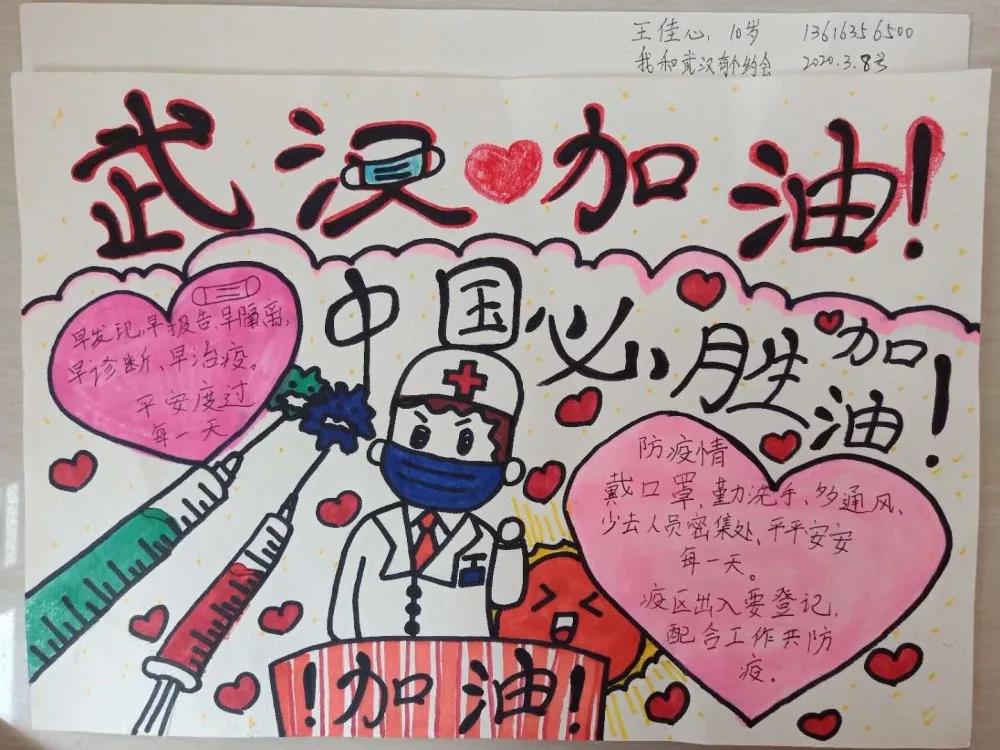 王佳心，10岁 13616356500
我和武汉有个约会 2020.3.8号
武汉加油！
中国必胜加油！
早发现、早报告、早隔离、
早诊断、早治疫。
平安度过
每一天
防疫情
戴口罩、勤洗手、多通风、
少去人员密集处、平平安安
每一天。
疫区出入要登记，
配合工作共防
疫。
！加油！